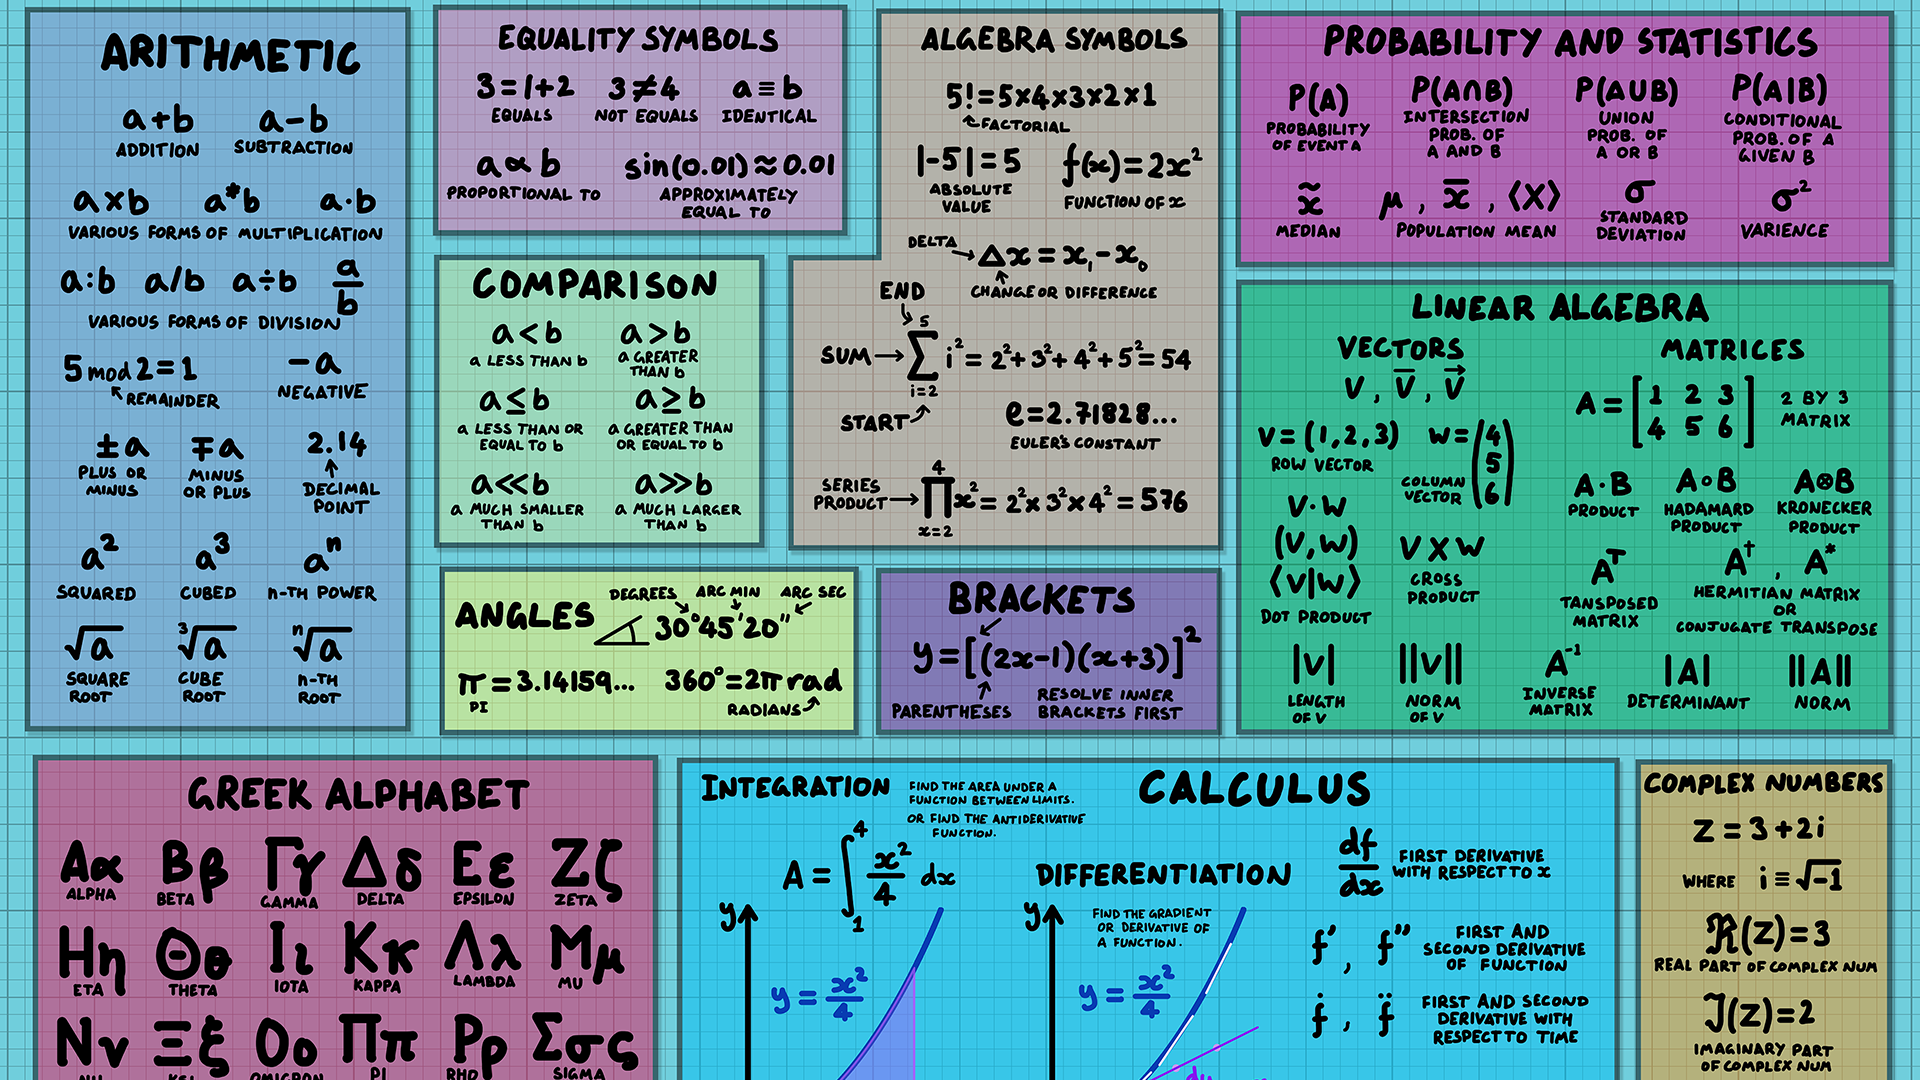 ARITHMETIC
a+b a-b
ADDITION SUBTRACTION
a×b a*b a·b
VARIOUS FORMS OF MULTIPLICATION
a:b a/b a÷b a/b
VARIOUS FORMS OF DIVISION
5mod2=1 -a
REMAINDER NEGATIVE
±a ∓a 2.14
PLUS OR MINUS
MINUS OR PLUS
DECIMAL POINT
a² a³ aⁿ
SQUARED CUBED n-TH POWER
√a ³√a ⁿ√a
SQUARE ROOT
CUBE ROOT
n-TH ROOT
EQUALITY SYMBOLS
3=1+2 3≠4 a≡b
EQUALS NOT EQUALS IDENTICAL
a∝b sin(0.01)≈0.01
PROPORTIONAL TO
APPROXIMATELY
EQUAL TO
COMPARISON
a<b a>b
a LESS THAN b
a GREATER
THAN b
a≤b a≥b
a LESS THAN OR
EQUAL TO b
a GREATER THAN
OR EQUAL TO b
a≪b a≫b
a MUCH SMALLER
THAN b
a MUCH LARGER
THAN b
ALGEBRA SYMBOLS
5!=5×4×3×2×1
FACTORIAL
|-5|=5 f(x)=2x²
ABSOLUTE
VALUE
FUNCTION OF x
DELTA
Δx=x₁-x₀
CHANGE OR DIFFERENCE
END
5
SUM→∑i²=2²+3²+4²+5²=54
i=2
START
e=2.71828...
EULER'S CONSTANT
4
SERIES
PRODUCT→∏x²=2²×3²×4²=576
x=2
PROBABILITY AND STATISTICS
P(A) P(A∩B) P(A∪B) P(A|B)
PROBABILITY
OF EVENT A
INTERSECTION
PROB. OF
A AND B
UNION
PROB. OF
A OR B
CONDITIONAL
PROB. OF A
GIVEN B
x̃ μ, x̄, ⟨X⟩ σ σ²
MEDIAN POPULATION MEAN
STANDARD
DEVIATION
VARIENCE
LINEAR ALGEBRA
VECTORS
V, V̅, V⃗
V=(1,2,3)
ROW VECTOR
W=(4 5 6)
COLUMN
VECTOR
V·W
(V,W)
⟨V|W⟩
DOT PRODUCT
V×W
CROSS
PRODUCT
|V| ||V||
LENGTH
OF V
NORM
OF V
MATRICES
A=[1 2 3
4 5 6]
2 BY 3
MATRIX
A·B A∘B A⊗B
PRODUCT
HADAMARD
PRODUCT
KRONECKER
PRODUCT
Aᵀ A†, A*
TANSPOSED
MATRIX
HERMITIAN MATRIX
OR
CONJUGATE TRANSPOSE
A⁻¹ |A| ||A||
INVERSE
MATRIX
DETERMINANT
NORM
ANGLES
DEGREES ARC MIN ARC SEC
30°45'20"
π=3.14159... 360°=2π rad
PI RADIANS
BRACKETS
y=[(2x-1)(x+3)]²
PARENTHESES
RESOLVE INNER
BRACKETS FIRST
GREEK ALPHABET
Αα Ββ Γγ Δδ Εε Ζζ
ALPHA BETA GAMMA DELTA EPSILON ZETA
Ηη Θθ Ιι Κκ Λλ Μμ
ETA THETA IOTA KAPPA LAMBDA MU
Νν Ξξ Οο Ππ Ρρ Σσς
PI RHO SIGMA
CALCULUS
INTEGRATION
FIND THE AREA UNDER A
FUNCTION BETWEEN LIMITS.
OR FIND THE ANTIDERIVATIVE
FUNCTION.
A=∫₁⁴ x²/4 dx
y
y=x²/4
DIFFERENTIATION
FIND THE GRADIENT
OR DERIVATIVE OF
A FUNCTION.
y
y=x²/4
df/dx
FIRST DERIVATIVE
WITH RESPECT TO x
f', f''
FIRST AND
SECOND DERIVATIVE
OF FUNCTION
ḟ, f̈
FIRST AND SECOND
DERIVATIVE WITH
RESPECT TO TIME
COMPLEX NUMBERS
Z=3+2i
WHERE i≡√-1
ℜ(Z)=3
REAL PART OF COMPLEX NUM
ℑ(Z)=2
IMAGINARY PART
OF COMPLEX NUM